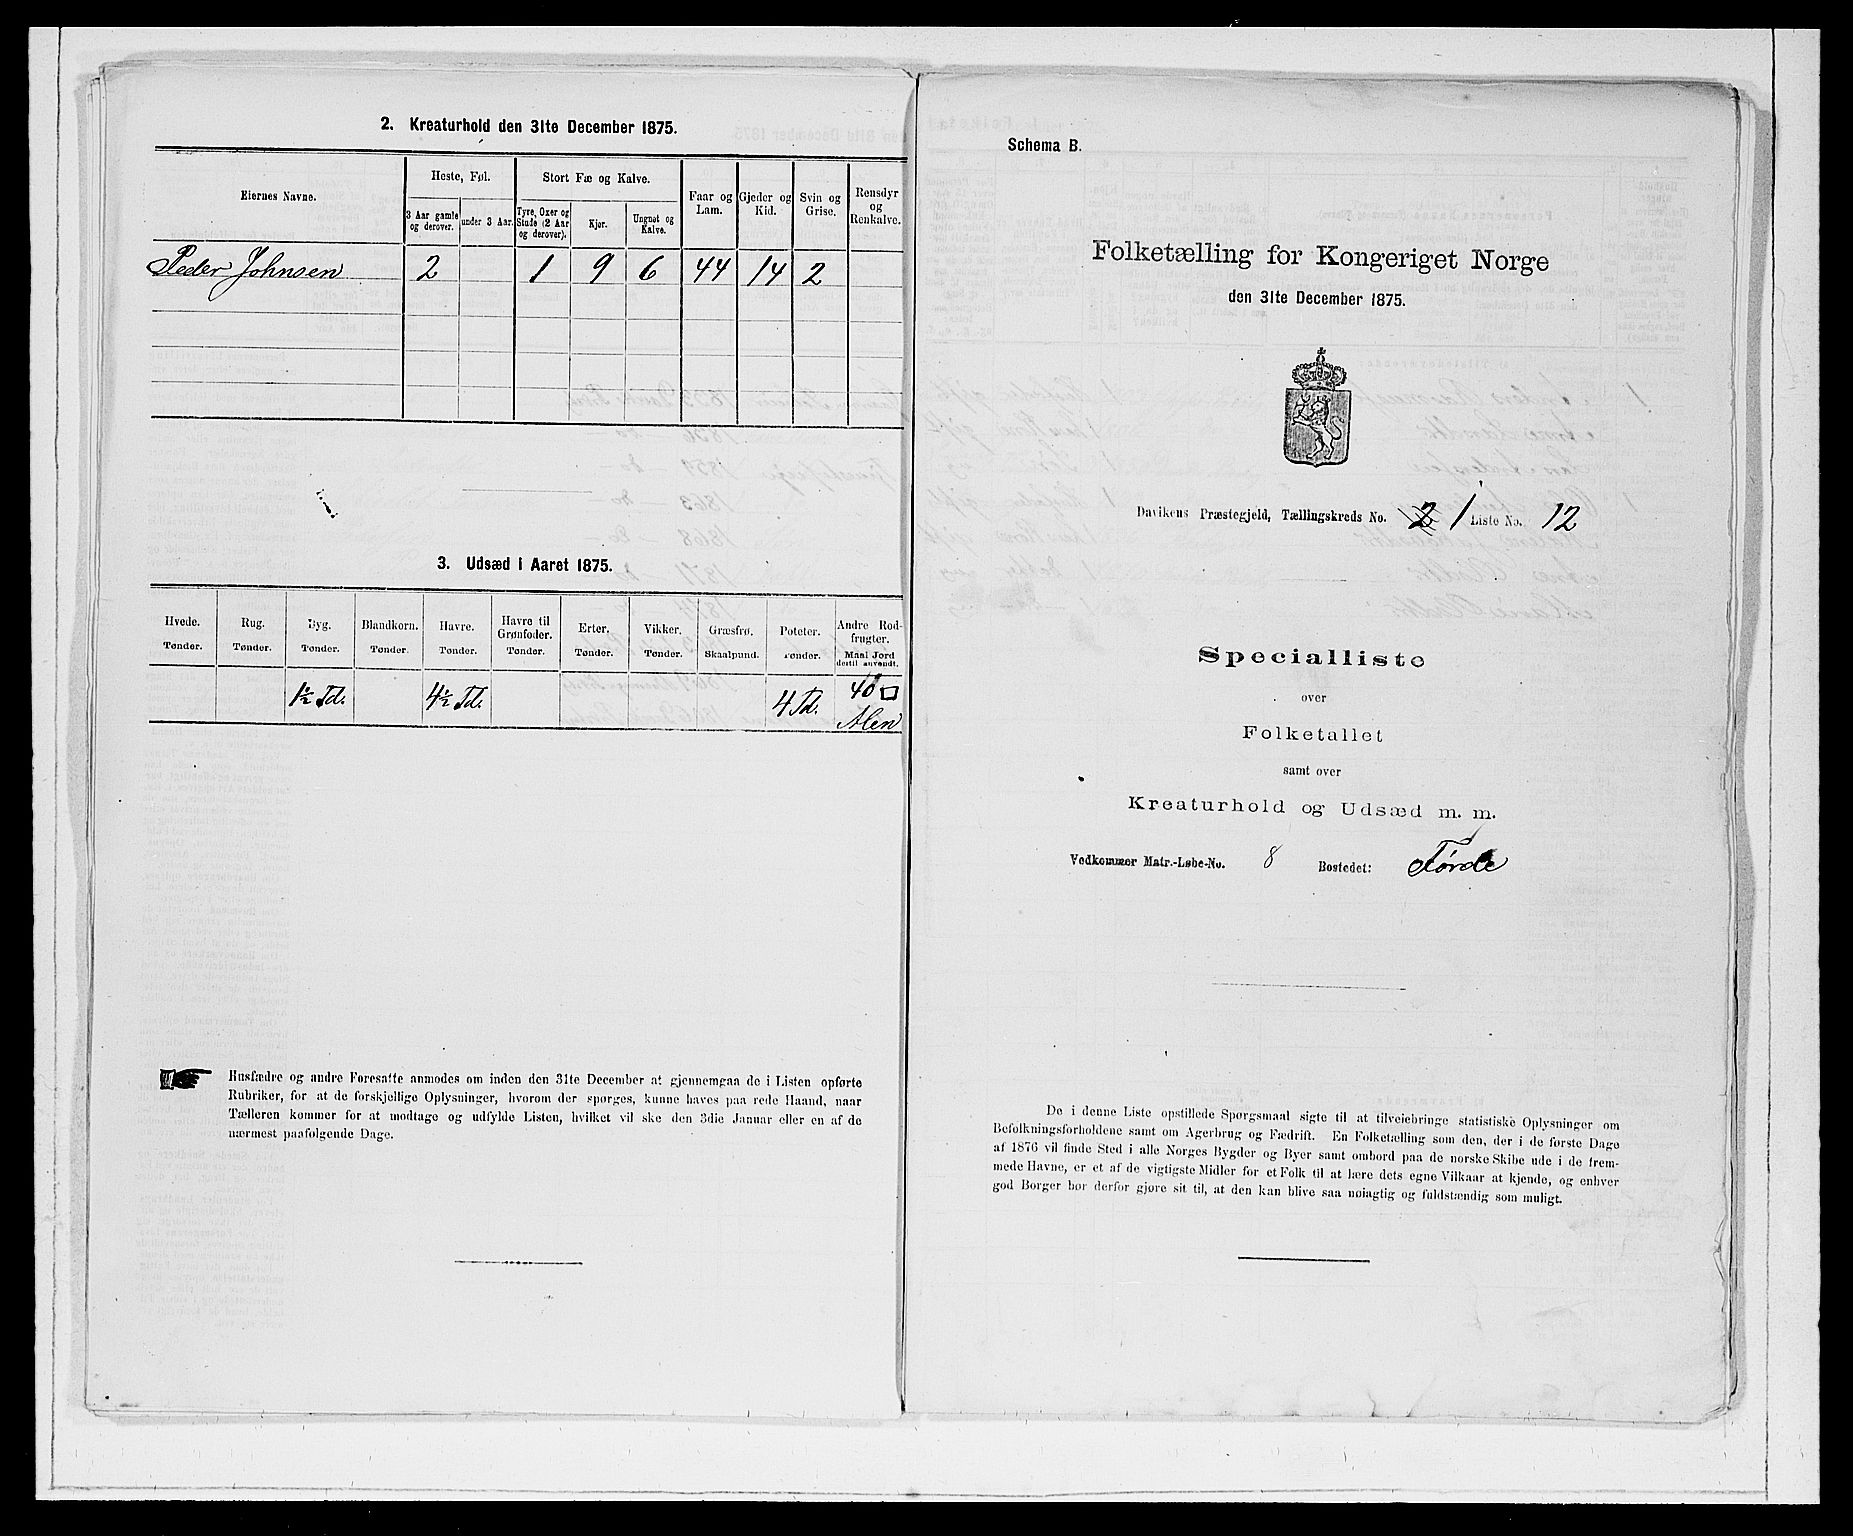 2. Kreaturhold den 31te December 1875.
Eiernes Navne.
Heste, Føl.
3 Aar gamle og derover.
under 3 Aar.
Stort Fæ og Kalve.
Tyre, Oxer og Stude (2 Aar og derover).
Kjør.
Ungnøt og Kalve.
Faar og Lam.
Gjeder og Kid.
Svin og Grise.
Rensdyr og Renkalve.
Peder Johnsen 2 1 9 6 44 14 2
3. Udsæd i Aaret 1875.
Hvede. Tønder.
Rug. Tønder.
Byg. Tønder.
Blandkorn. Tønder.
Havre. Tønder.
Havre til Grønfoder. Tønder.
Erter. Tønder.
Vikker. Tønder.
Græsfrø. Skaalpund.
Poteter. Tønder.
Andre Rodfrugter. Maal Jord dertil anvendt.
1½ Td. 4½ Td. 4 Td. 40 □ Alen
Husfædre og andre Foresatte anmodes om inden den 31te December at gjennemgaa de i Listen opførte
Rubriker, for at de forskjellige Oplysninger, hvorom der spørges, kunne haves paa rede Haand, naar
Tælleren kommer for at modtage og udfylde Listen, hvilket vil ske den 3die Januar eller en af de
nærmest paafølgende Dage.
Schema B.
Folketælling for Kongeriget Norge
den 31te December 1875.
Davikens Præstegjeld, Tællingskreds No. 2 1 Liste No. 12
Specialliste
over
Folketallet
samt over
Kreaturhold og Udsæd m. m.
Vedkommer Matr.-Løbe-No. 8 Bostedet: Førde
De i denne Liste opstillede Spørgsmaal sigte til at tilveiebringe statistiske Oplysninger om
Befolkningsforholdene samt om Agerbrug og Fædrift. En Folketælling som den, der i de første Dage
af 1876 vil finde Sted i alle Norges Bygder og Byer samt ombord paa de norske Skibe ude i de frem-
mede Havne, er et af de vigtigste Midler for et Folk til at lære dets egne Vilkaar at kjende, og enhver
god Borger bør derfor gjøre sit til, at den kan blive saa nøiagtig og fuldstændig som muligt.